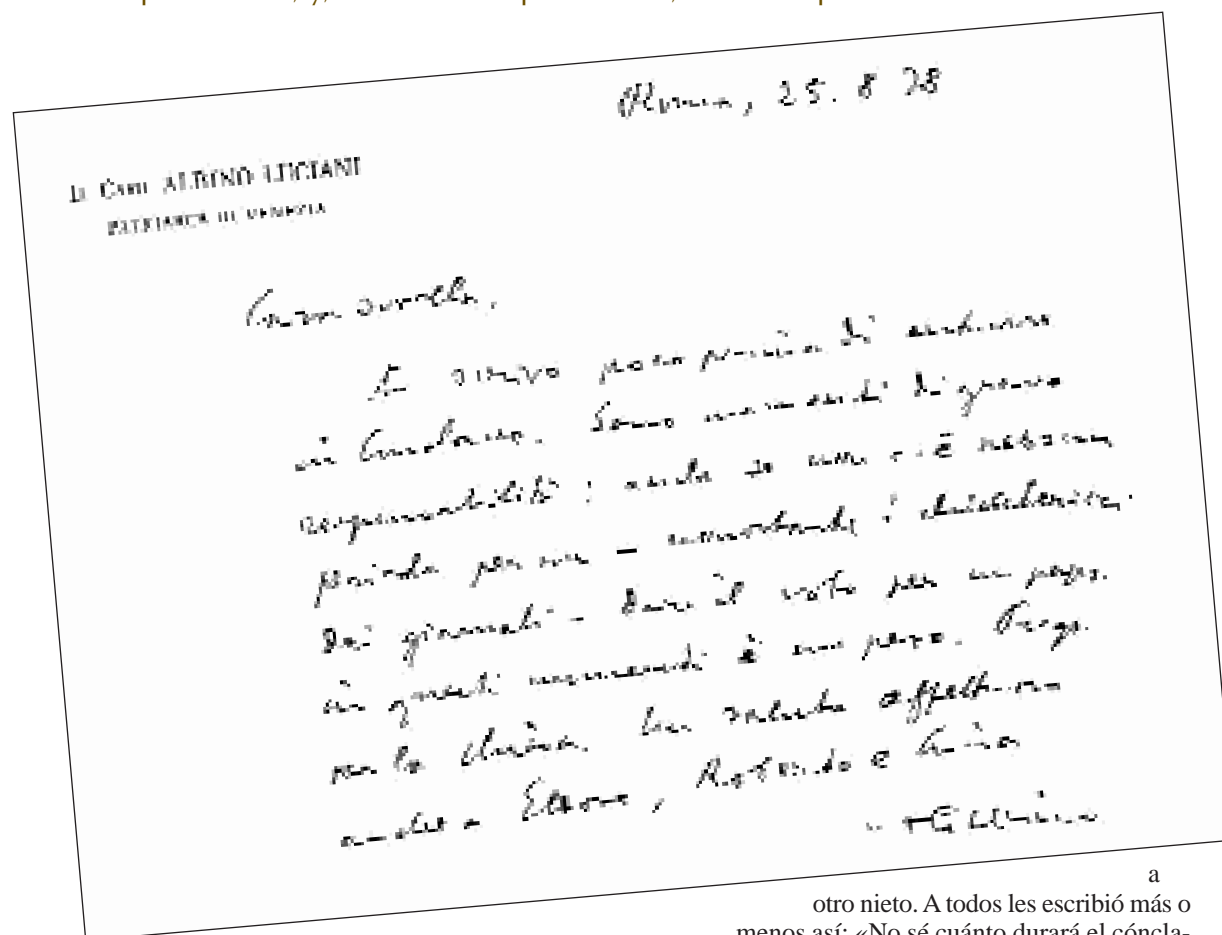 Roma, 25. 8 78
IL CARD. ALBINO LUCIANI
PATRIARCA DI VENEZIA
Cara sorella,
scrivo poco prima di entrare
in Conclave. Sono momenti di grave
responsabilità: anche se non c'è nessun
pericolo per me – nonostante i
dei giornali – dare il voto per un papa
in questi momenti è un peso. Prega
per la Chiesa. Un saluto affettuoso
anche a Ettore, Roberto e
Albino
a
otro nieto. A todos les escribió más o
menos así: «No sé cuánto durará el cóncla-